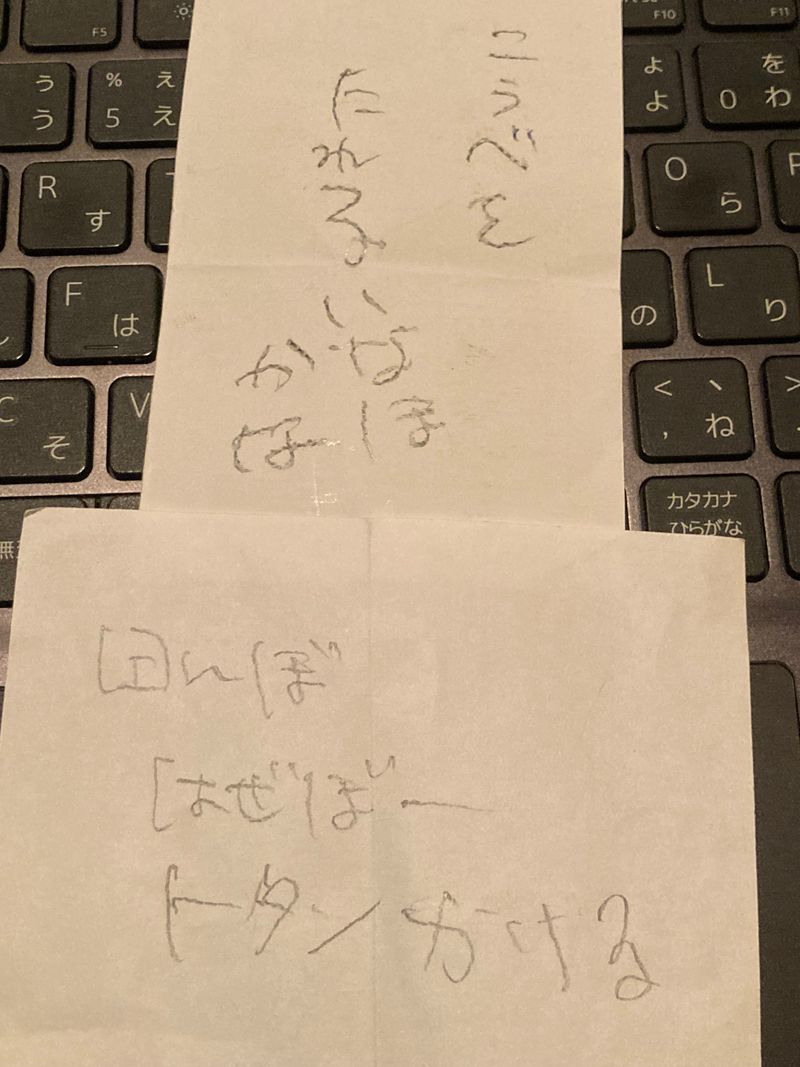 こうべを
たれるいなほ
かな
田んぼ
はぜぼー
トータンかける
F5
F10
F11
う
う
% え
5 え
よ
よ
を
0 わ
R
す
O
ら
P
F
は
の
L
り
C
そ
V
< 、
, ね
>
カタカナ
ひらがな
無